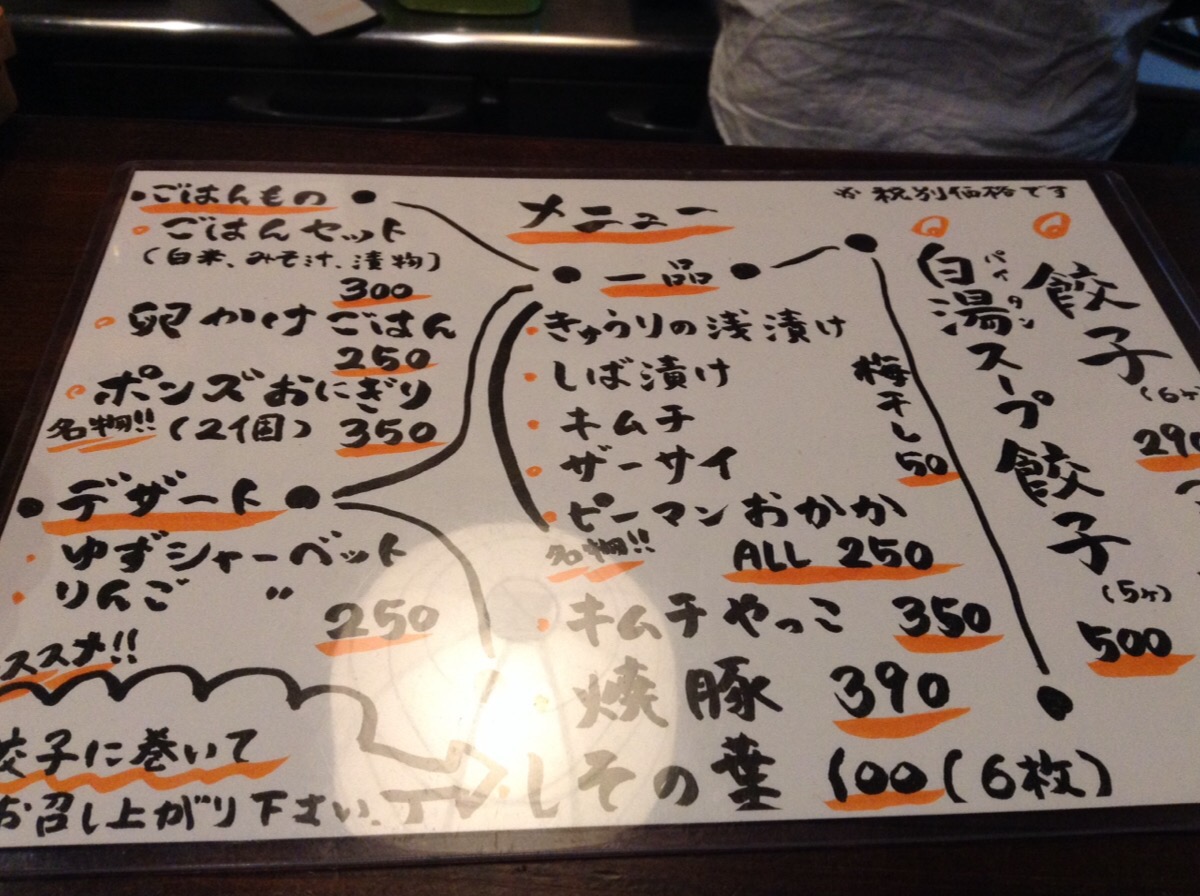 メニュー
※税別価格です
・ごはんもの
ごはんセット
(白米、みそ汁、漬物)
300
卵かけごはん
250
ポンズおにぎり
名物!! (2個) 350
デザート
ゆずシャーベット
りんご 〃
250
ススメ!!
餃子に巻いて
お召し上がり下さい。
一品
きゅうりの浅漬け
しば漬け
キムチ
ザーサイ
ピーマンおかか
名物!! ALL 250
梅干し
50
キムチやっこ 350
焼豚 390
しその葉 100(6枚)
餃子
(6ヶ)
290
白湯スープ餃子
パイタン
(5ヶ)
500